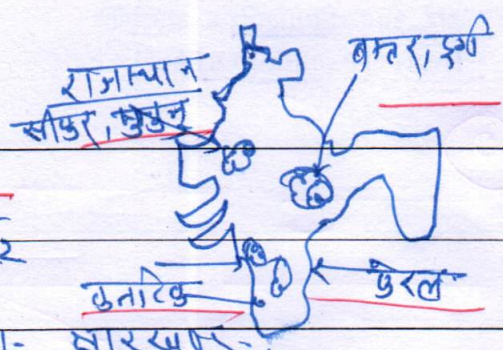 राजस्थान
सीकर, झुंझुनू
बस्तर, दुर्ग
कर्नाटक
केरल
झारखण्ड-